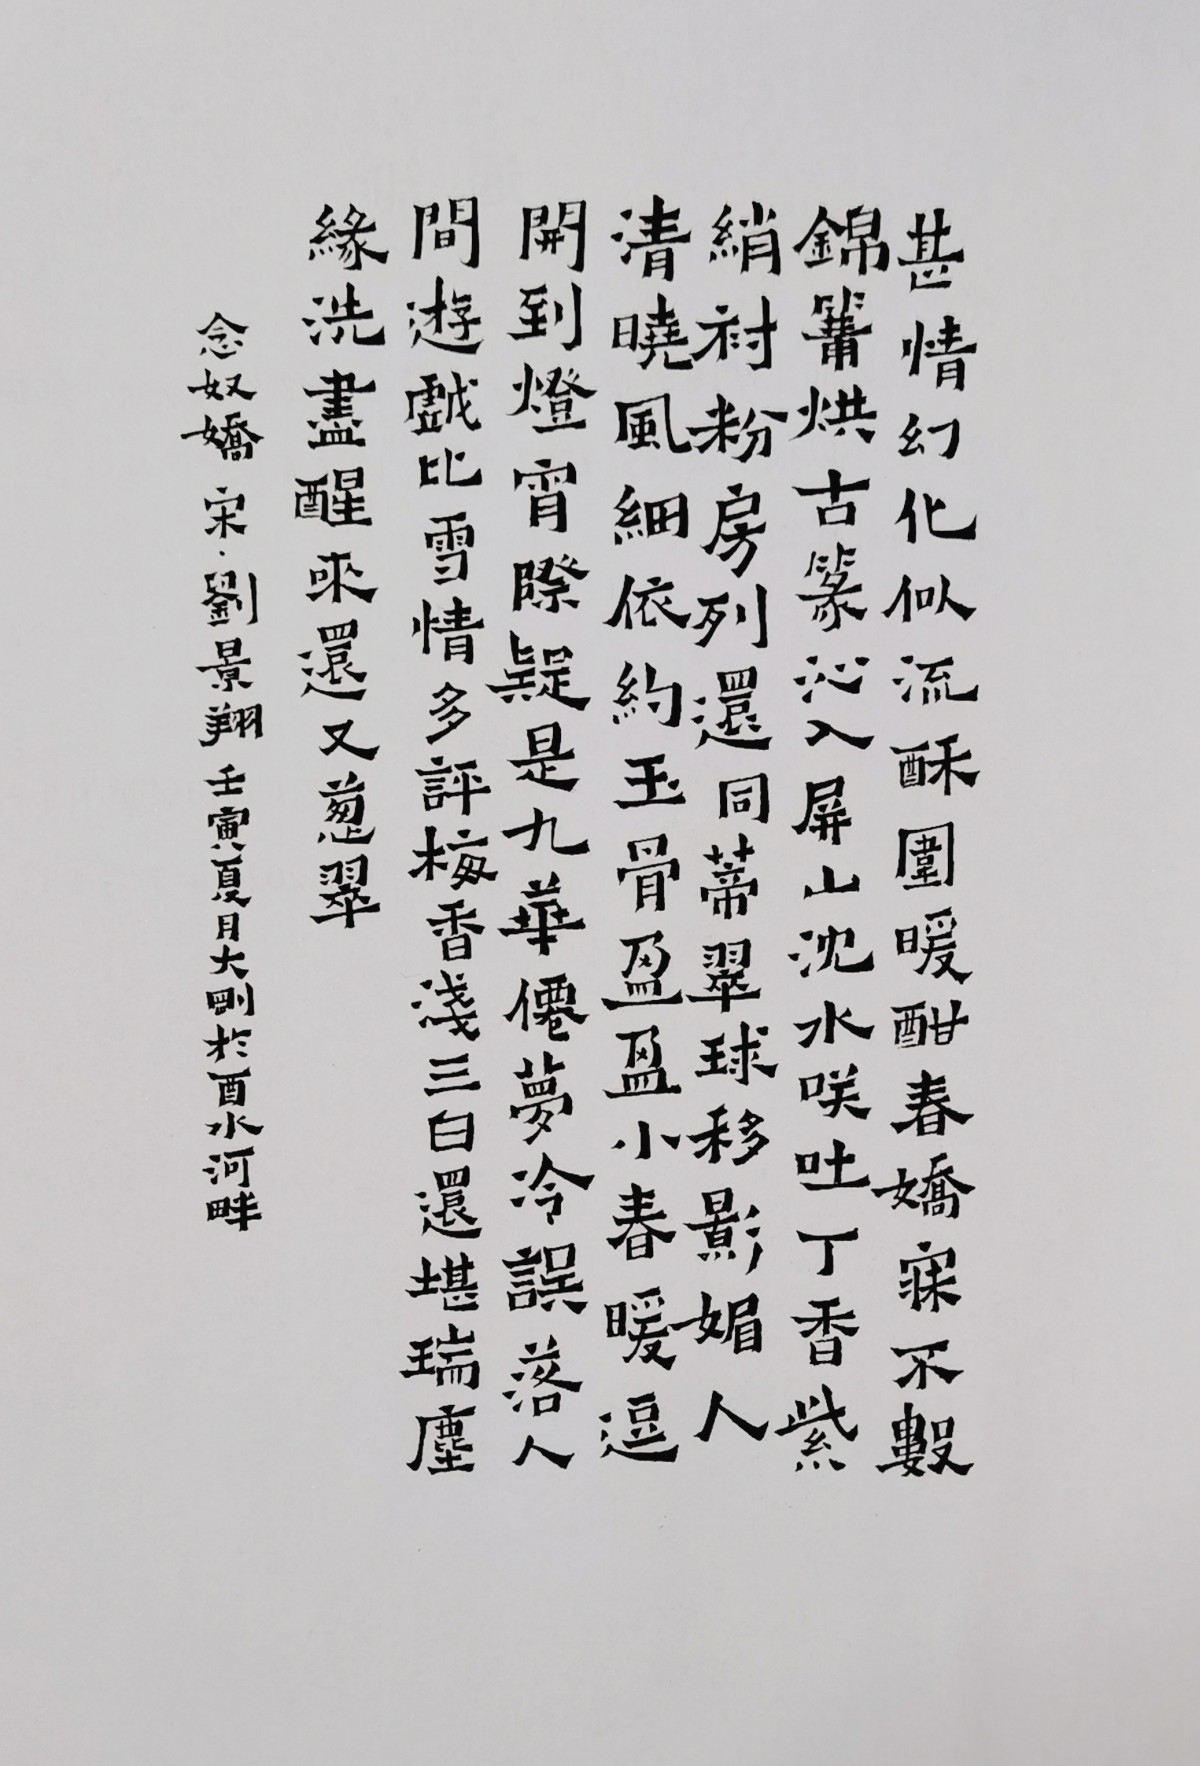 甚情幻化似流酥圍暖酣春嬌寐不數
錦篝烘古篆沁入屏山沈水咲吐丁香紫
綃衬粉房列還同蒂翠球移影媚人
清曉風細依約玉骨盈盈小春暖逗
開到燈宵際疑是九華僊夢冷誤落人
間遊戲比雪情多評梅香淺三白還堪瑞塵
緣洗盡醒來還又蔥翠
念奴嬌宋·劉景翔壬寅夏月大剛於酉水河畔